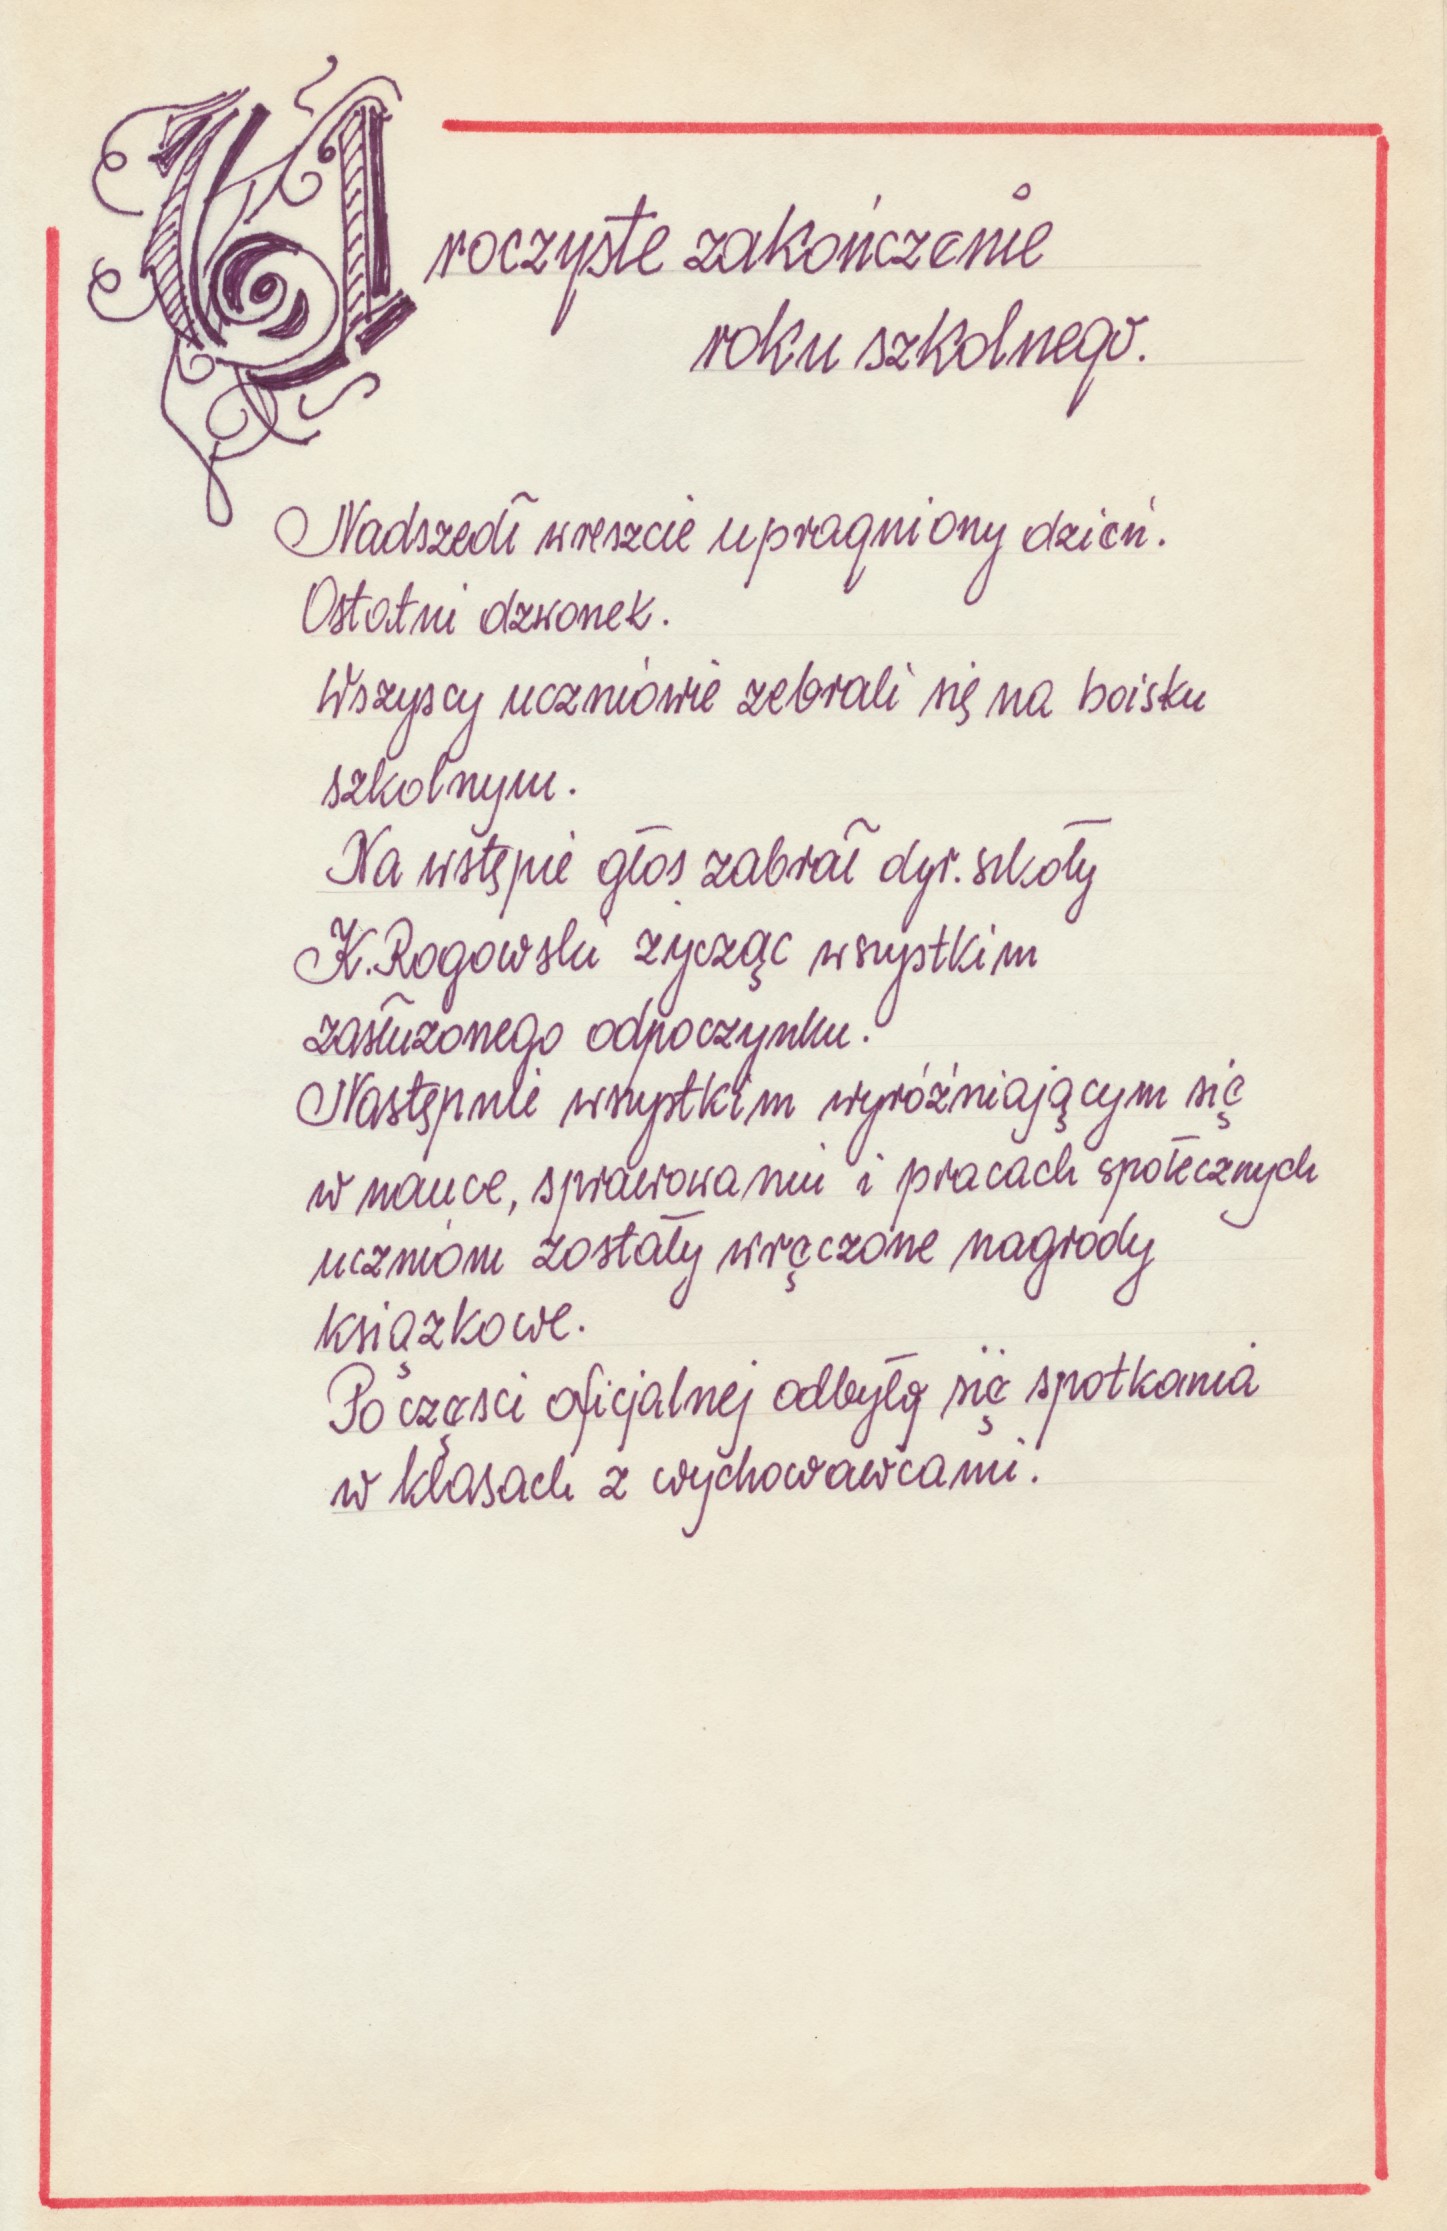 Uroczyste zakończenie
roku szkolnego.
Nadszedł wreszcie upragniony dzień.
Ostatni dzwonek.
Wszyscy uczniowie zebrali się na boisku
szkolnym.
Na wstępie głos zabrał dyr. szkoły
K. Rogowski życząc wszystkim
zasłużonego odpoczynku.
Następnie wszystkim wyróżniającym się
w nauce, sprawowaniu i pracach społecznych
uczniom zostały wręczone nagrody
książkowe.
Po części oficjalnej odbyły się spotkania
w klasach z wychowawcami.